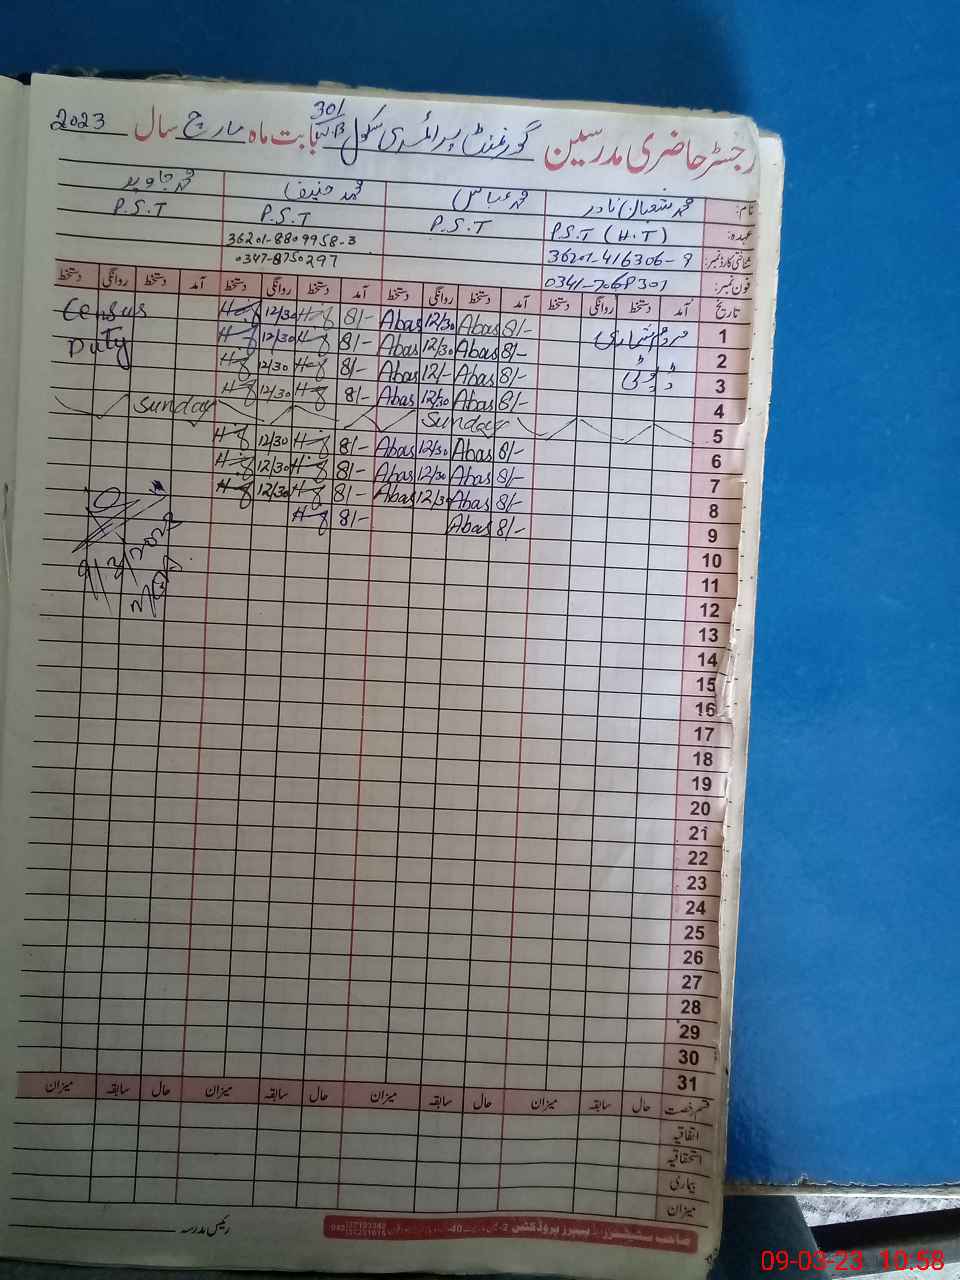 رجسٹر حاضری مدرسین گورنمنٹ پرائمری سکول 301/W.B بابت ماہ مارچ سال 2023
نام: محمد شعبان نادر محمد عباس محمد حنیف محمد جاوید
عہدہ: P.S.T (H.T) P.S.T P.S.T P.S.T
شناختی کارڈ نمبر: 36201-416306-9 36201-8809958-3
فون نمبر: 0341-7068301 0347-8750297
تاریخ آمد دستخط روانگی دستخط آمد دستخط روانگی دستخط آمد دستخط روانگی دستخط آمد دستخط روانگی دستخط
1 مردم شماری 8/- Abas 12/30 Abas 8/- 12/30 Census
2 8/- Abas 12/30 Abas 8/- 12/30 Duty
3 ڈیوٹی 8/- Abas 12/- Abas 8/- 12/30
4 8/- Abas 12/30 Abas 8/- 12/30
5 Sunday Sunday
6 8/- Abas 12/30 Abas 8/- 12/30
7 8/- Abas 12/30 Abas 8/- 12/30
8 8/- Abas 12/30 Abas 8/- 12/30
9 8/- Abas 8/-
9/3/2023
10
11
12
13
14
15
16
17
18
19
20
21
22
23
24
25
26
27
28
29
30
31
قسم رخصت حال سابقہ میزان حال سابقہ میزان حال سابقہ میزان حال سابقہ میزان
اتفاقیہ
استحقاقیہ
بیماری
میزان
رئیس مدرسہ
صاحب سٹیشنرز اینڈ پیپرز پروڈکشن
09-03-23 10:58